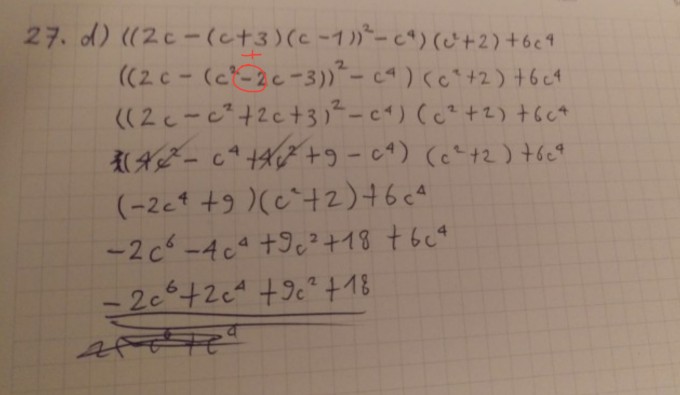 27. d) ((2c-(c+3)(c-1))²-c⁴)(c²+2)+6c⁴
+
((2c-(c²-2c-3))²-c⁴)(c²+2)+6c⁴
((2c-c²+2c+3)²-c⁴)(c²+2)+6c⁴
((4c²-c⁴+4c²+9-c⁴)(c²+2)+6c⁴
(-2c⁴+9)(c²+2)+6c⁴
-2c⁶-4c⁴+9c²+18+6c⁴
-2c⁶+2c⁴+9c²+18